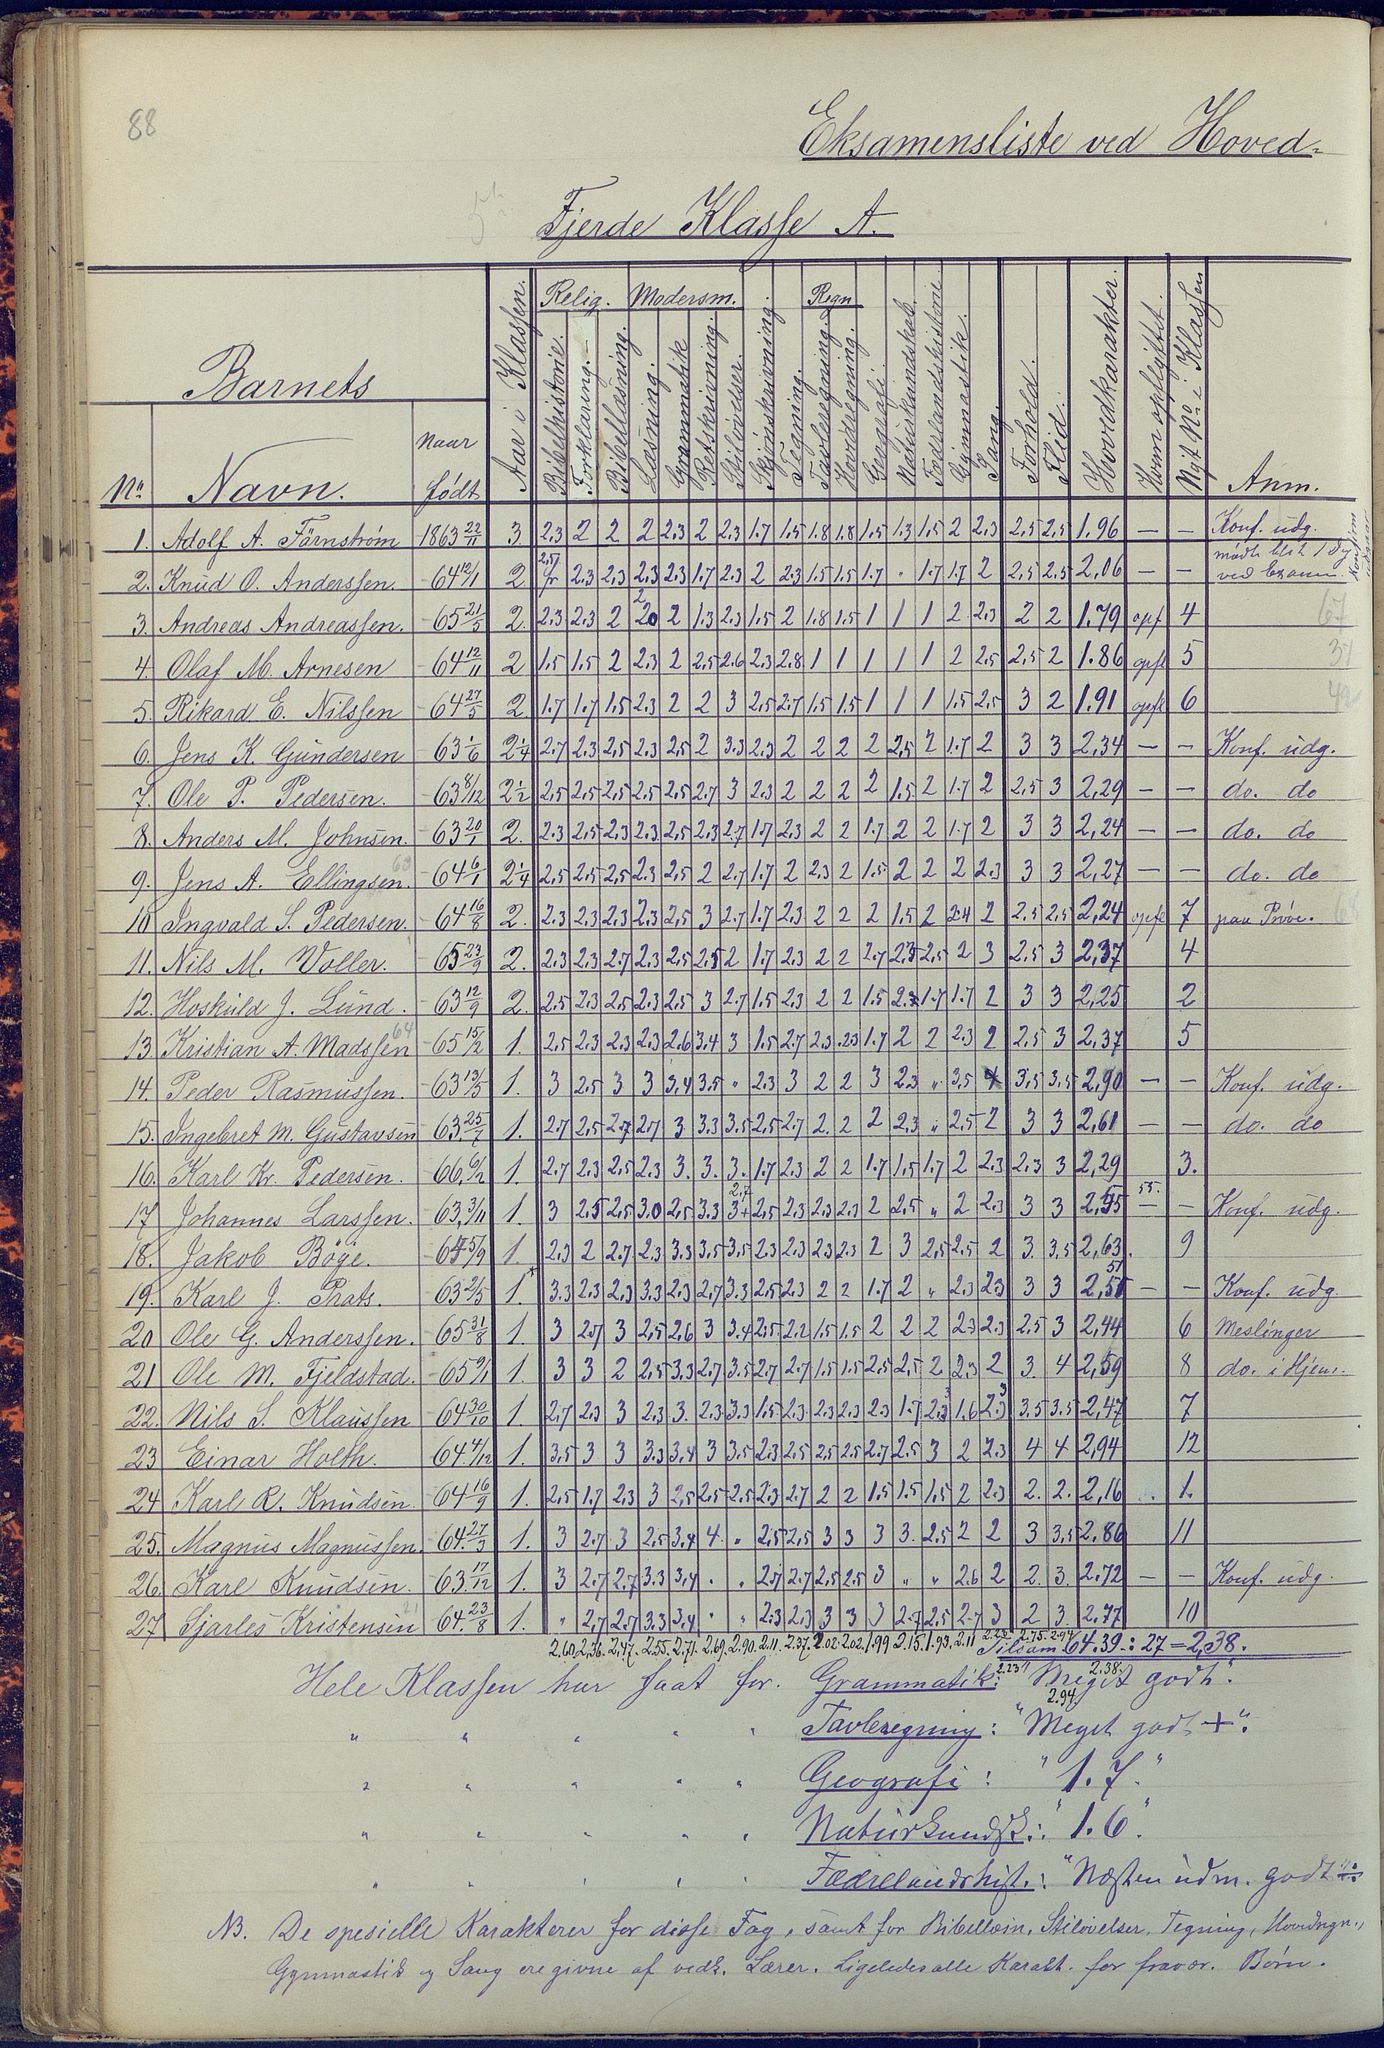 88
Eksamensliste ved Hoved-
Fjerde Klasse A.
Barnets
No Navn. Naar født Aar i Klassen. Relig. Bibelhistorie. Forklaring. Bibellæsning. Modersm. Læsning. Grammatik Retskrivning. Stiløvelser. Skjönskrivning. Tegning. Regn Tavleregning. Hovedregning. Geografi. Naturkundskab. Fædrelandshistorie. Gymnastik. Sang. Forhold. Flid. Hovedkarakter. Hvem opflyttet. Nyt No i Klassen Anm.
1. Adolf A. Färnstrøm 1863 22/11 3 2.3 2 2 2 2.3 2 2.3 1.7 1.5 1.8 1.8 1.5 1.3 1.5 2 2.3 2.5 2.5 1.96 — — Konf. udg.
2. Knud O. Anderssen. 64 12/1 2 2.3 2.3 2.3 2.3 1.7 2.3 2 2.3 1.5 1.5 1.7 " 1.7 1.7 2 2.5 2.5 2,06 — — ved Exam.
3. Andreas Andreassen. 65 21/5 2. 2.3 2.3 2 2.0 2 1.3 2.3 1.5 2 1.8 1.5 1 1 1 2 2.3 2 2 1.79 opf 4 67
4. Olaf M. Arnesen 64 12/11 2 1.5 1.5 2 2.3 2 2.5 2.6 2.3 2.8 1 1 1 1 1 2 2.5 2.5 2 1.86 opfl 5 37
5. Rikard E. Nilssen 64 27/5 2. 1.7 1.7 1.5 2.3 2 2 3 2.5 2.7 1.5 1.5 1 1 1 1.5 2.5 3 2 1.91 opfl 6
6. Jens K. Gundersen 63 1/6 2 1/4 2.7 2.3 2.5 2.3 2.5 2 3.3 2.3 2 2 2 2 2.5 2 1.7 2 3 3 2,34 — — Konf. udg.
7. Ole P. Pedersen. 63 8/12 2 1/2 2.5 2.5 2.5 2.5 2.5 2.7 3 2.3 2 2 2 2 1.5 2 1.7 2 2.5 3 2,29 — — do. do
8. Anders M. Johnsen. 63 20/1 2. 2.3 2.5 2.3 2.3 2.5 2.3 2.7 1.7 2.3 2 2 1.7 2 2 1.7 2 3 3 2,24 — — do. do
9. Jens A. Ellingsen. 64 6/1 2 1/4 2.5 2.5 2.5 2.3 2.5 2 2.7 1.7 2 2.3 2 1.5 2 2 2 2.3 3 3 2,27 — — do. do
10 Ingvald S. Pedersen. 64 16/8 2. 2.3 2.3 2.3 2.3 2.5 3 2.7 1.7 2.3 2 2 2 1.5 2 2.4 2 2.5 2.5 2,24 opfl 7 paa Prøve. 68
11. Nils M. Voller. 65 23/9 2. 2.3 2.3 2.7 2.3 2.5 2.5 2 1.7 2.3 2 2 2.7 2.3 2.5 2 3 2.5 3 2,37 4
12. Hoskuld J. Lund. 63 12/9 2. 2.5 2.3 2.5 2.3 2.5 3 2.7 1.5 2.3 2 2 1.5 2.3 1.7 1.7 2 3 3 2,25 2
13. Kristian A. Madssen 64 65 15/2 1. 2.5 2.3 2.3 2.3 2.6 3.4 3 1.5 2.7 2.3 2.3 1.7 2 2 2.3 2 2.5 3 2,37 5
14. Peder Rasmussen. 63 13/5 1. 3 2.5 3 3 3.4 3.5 " 2.3 3 2 2 3 2.3 " 3.5 4 3.5 3.5 2,90 — — Konf. udg.
15. Ingebret M. Gustavsen 63 25/7 1. 2.7 2.5 2.7 2.7 3 3.3 3.5 2.5 2.7 2 2 2 2.3 " 2.5 2 3 3 2,61 — — do. do
16. Karl Kr. Pedersen. 66 6/2 1. 2.7 2.3 2.5 2.3 3. 3. 3. 1.7 2.3 2 2 1.7 1.5 1.7 2 2.3 2.3 3 2,29 3.
17 Johannes Larssen. 63 3/11 1. 3 2.5 2.5 3.0 2.5 3.3 3+ 2.7 2.5 2.3 2.3 2.3 2 2.5 " 2 2.3 3 3 2,55 55. — — Konf. udg.
18. Jakob Böge. 64 5/9 1. 2.3 2 2.7 2.3 3.3 3.5 3.5 2.3 2.3 2.3 2.3 2 3 2.5 2.5 2 3. 3.5 2,63. 9
19. Karl J. Prats. 63 2/5 1. 3.3 2.3 2.3 3.3 2.3 2.7 3.3 2.5 2.3 2 2 1.7 2 " 2.3 2.3 3 3 2,51 — — Konf. udg
20 Ole G. Anderssen. 65 31/8 1. 3 2.7 3 2.5 2.6 3 3.4 2.5 2.2 1.5 1.5 2 2 2 2.3 2.3 2.5 3 2,44 6 Meslinger
21 Ole M. Fjeldstad. 65 9/1 1. 3 3 2 2.5 3.3 2.7 3.5 2.7 2.7 1.5 1.5 2.5 2.5 2 2.3 2 3. 4 2,59 8 do. i Hjem.
22. Nils S. Klaussen 64 30/10 1. 2.7 2.3 3 2.3 3. 2.3 3.3 1.5 2.3 2.3 2.3 2.3 1.7 2.3 1.6 2.3 3.5 3.5 2,47 7
23 Einar Holth. 64 4/12 1. 3.5 3 3 3.3 3.4 3 3.5 2.3 2.5 2.5 2.5 2.7 2.5 3 2 2.3 4 4 2,94 12
24 Karl R. Knudsen. 64 16/9 1. 2.5 1.7 2.3 3 2.5 2.5 2.5 2.3 2.7 2 2 1.5 1.5 1.5 2 2.3 2. 2. 2,16 1.
25. Magnus Magnussen. 64 27/3 1. 3 2.7 3 2.5 3.4 4. " 2.5 2.5 3 3 3 3. 2.5 2 2 3 3.5 2.86 11
26. Karl Knudsen. 63 17/12 1. 3 2.7 2.7 3.3 3.4 " " 2.7 2.7 2.5 2.5 3 " " 2.6 2 2. 3. 2.72 — — Konf. udg.
27 Sjarles Kristensen 21 64 23/8 1. " 2.7 2.7 3.3 3.4 " " 2.3 2.3 3 3 3 2.7 2.5 2.7 3 2 3. 2.77 10
2.60. 2.36. 2.47. 2.55. 2.71. 2.69. 2.90. 2.11. 2.37. 2.02. 2.02. 1.99 2.15. 1.93. 2.11 2.23. 2.75. 2.94 Tilsam 64.39.: 27 = 2,38.
Hele Klassen har faat for. Grammatik: "Meget godt."
" " " " " Tavleregning: "Meget godt +".
" " " " " Geografi: "1.7."
" " " " " Naturkundsk.: "1.6".
" " " " " Fædrelandshist.: "Næsten udm. godt"
NB. De spesielle Karakterer for disse Fag, samt for Bibellæsn, Stiløvelser, Tegning, Hovedregn.,
Gymnastik og Sang ere givne af vedk. Lærer. Ligeledes alle Karakt. for fravær. Børn.